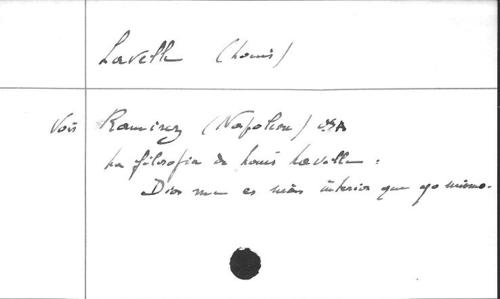 Lavelle (Louis)
Voir Ramirez (Napoleon) OSA
La filosofia de Louis Lavelle :
Dios me es más interior que yo mismo.